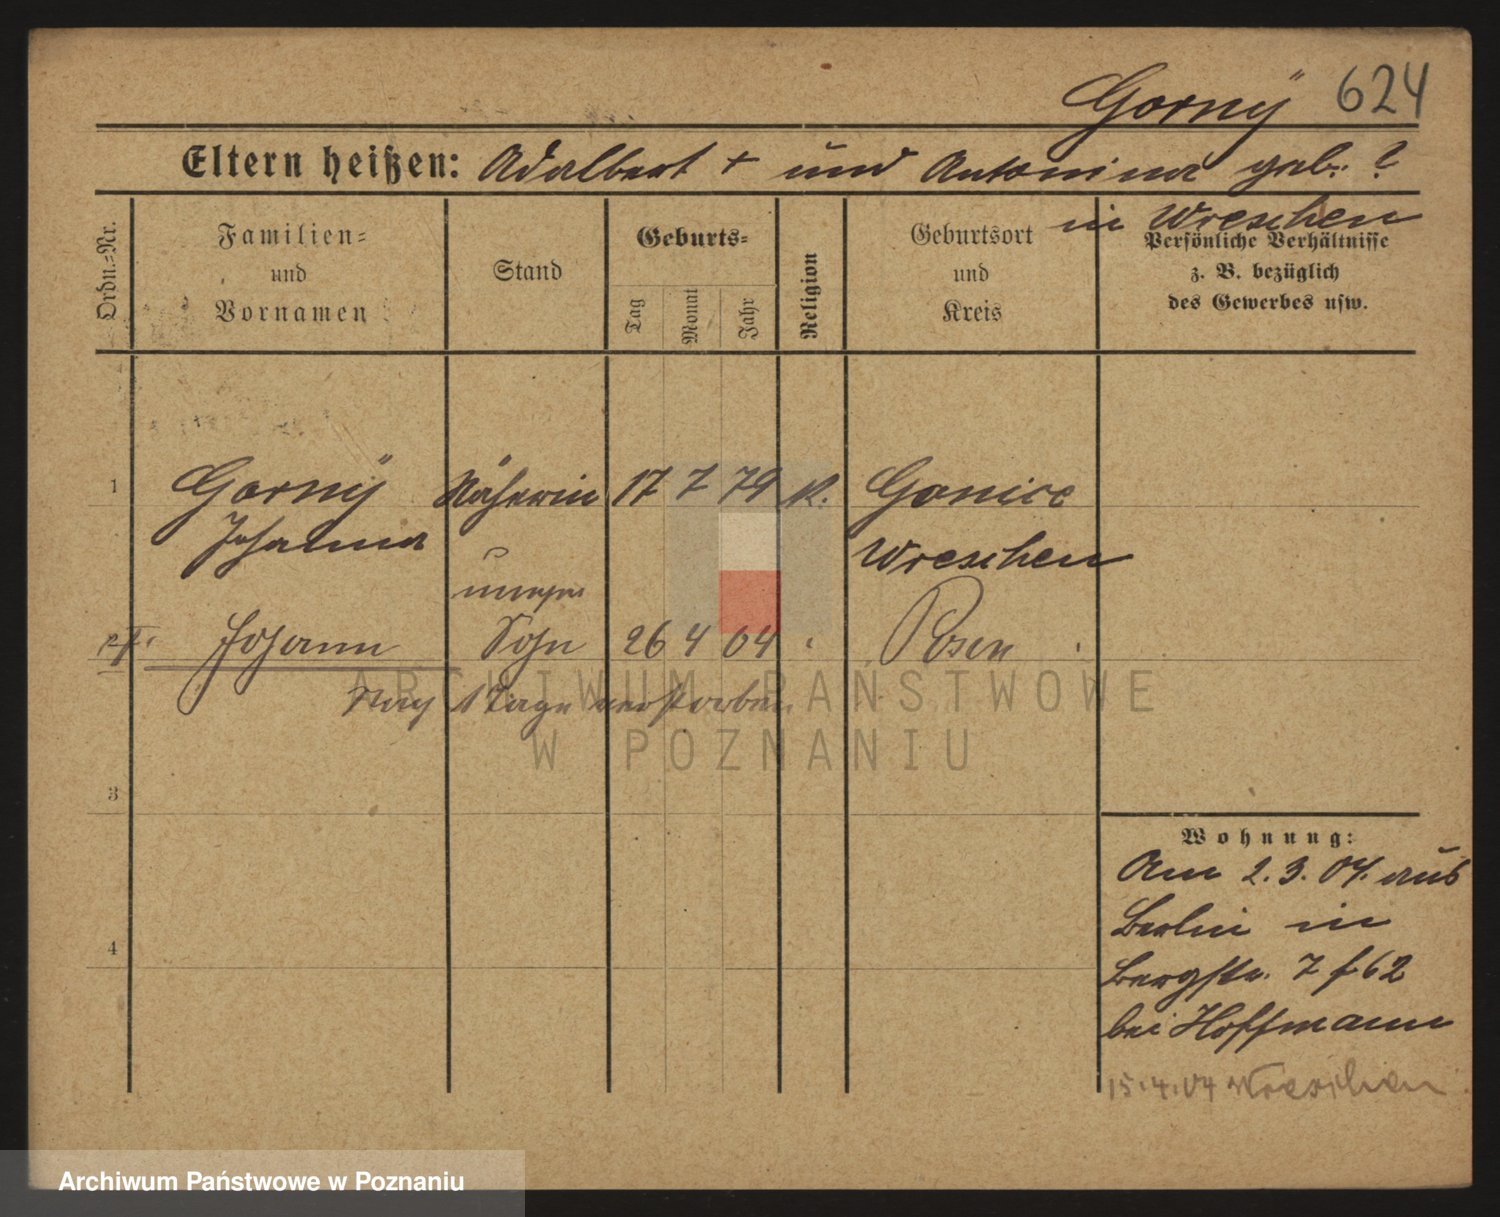 Gorny 624
Eltern heißen: Adalbert + und Antonina geb. ?
in Wreschen
Ordn.=Nr.
Familien=
und
Vornamen
Stand
Geburts=
Tag
Monat
Jahr
Religion
Geburtsort
und
Kreis
Persönliche Verhältnisse
z. B. bezüglich
des Gewerbes usw.
1 Gorny Näherin 17 7 79 K. Gonice
Johanna Wreschen
Johann Sohn 26 4 04 Posen
nach 1 Tage verstorben
ARCHIWUM PAŃSTWOWE
W POZNANIU
3
4
Wohnung:
Am 2.3.04. aus
Berlin in
Bergstr. 7 f 62
bei Hoffmann
15.4.04 Wreschen
Archiwum Państwowe w Poznaniu